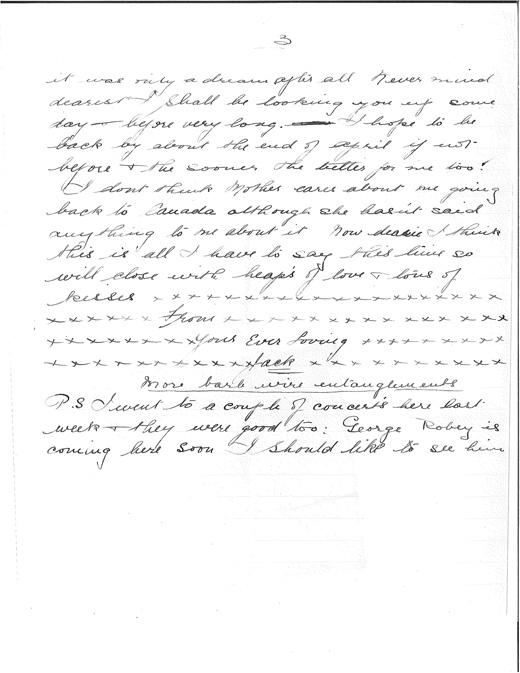 3
it was only a dream after all Never mind
dearest I shall be looking you up some
day — before very long. — I hope to be
back by about the end of April if not
before & the sooner the better for me too!
I dont think Mother cares about me going
back to Canada although she hasn't said
anything to me about it Now dearie I think
this is all I have to say this time so
will close with heaps of love & tons of
kisses x x x x x x x x x x x x x x x x x x
x x x x x x From x x x x x x x x x x x x
x x x x x x x x Yours Ever Loving x x x x x x x x
x x x x x x x x x x x Jack x x x x x x x x x x x
More barb wire entanglements
P.S I went to a couple of concerts here last
week & they were good too: George Robey is
coming here soon I should like to see him